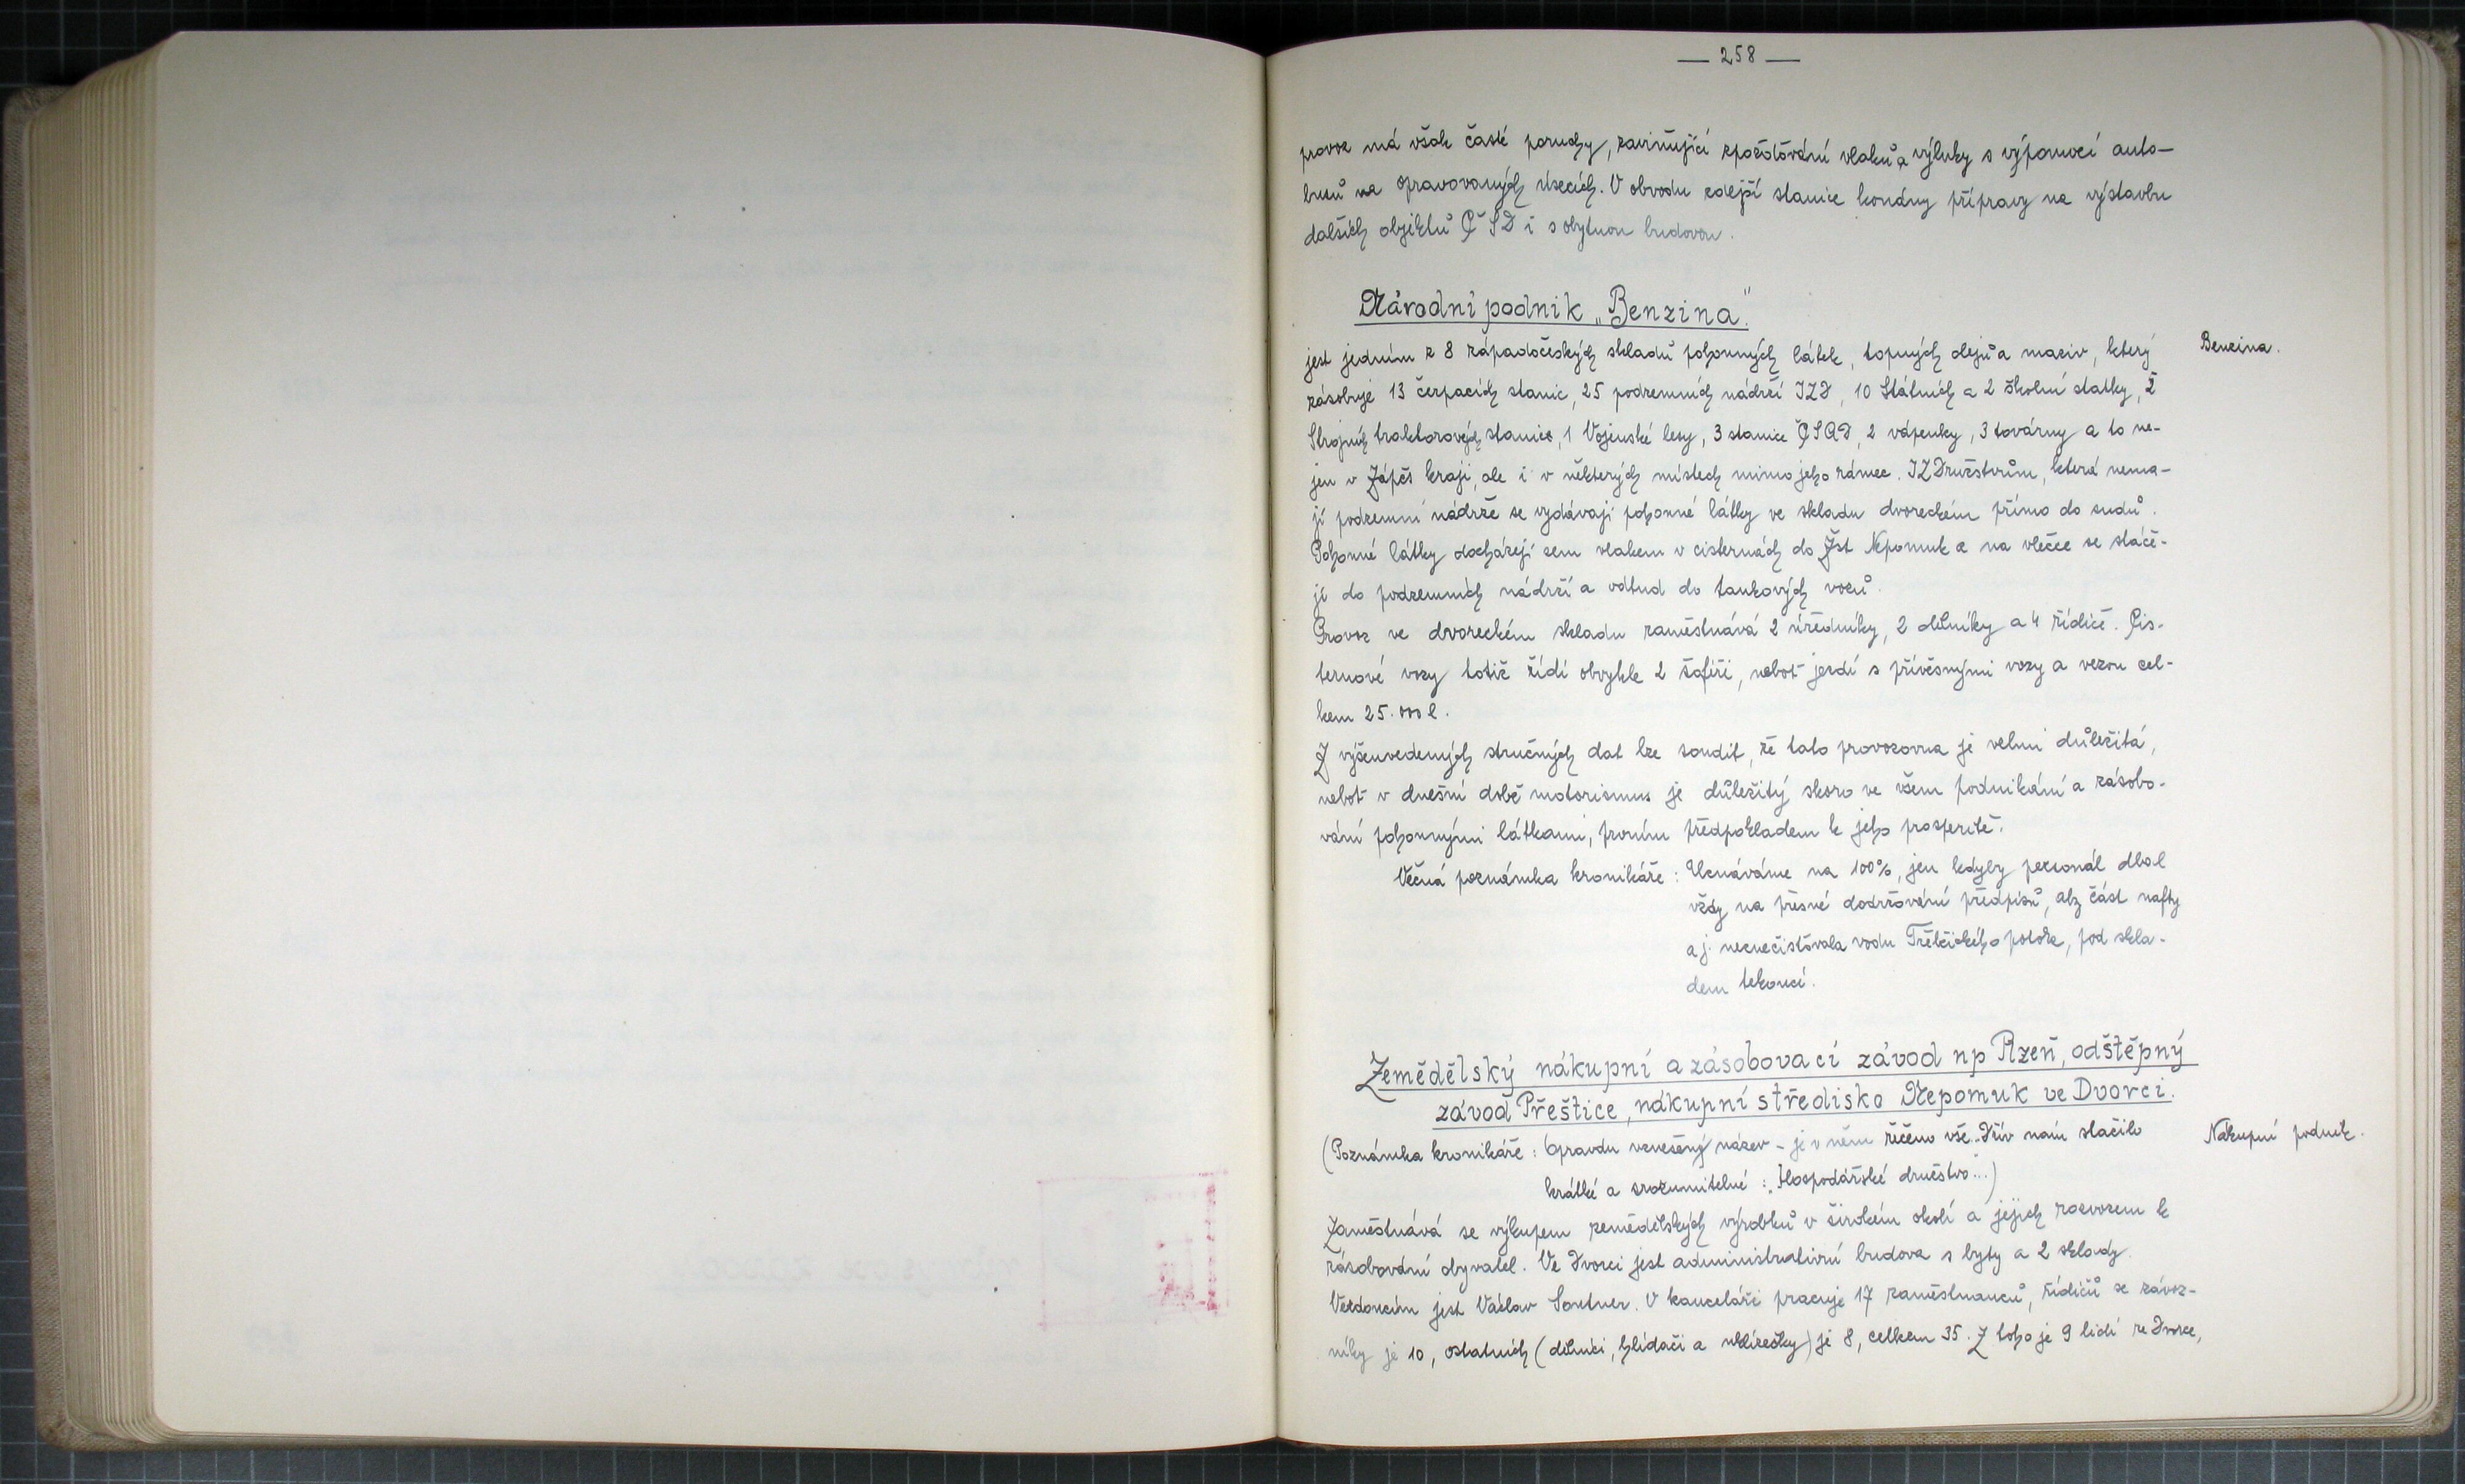 — 258 —
provoz má však časté poruchy, zaviňující zpožďování vlaků a výluky s výpomocí auto-
busů na opravovaných úsecích. V obvodu zdejší stanice konány přípravy na výstavbu
dalších objektů ČSD i s obytnou budovou.
Národní podnik „Benzina".
jest jedním z 8 západočeských skladů pohonných látek, topných olejů a maziv, který
Benzina.
zásobuje 13 čerpacích stanic, 25 podzemních nádrží JZD, 10 Státních a 2 školní statky, 2
Strojních traktorových stanic, 1 Vojenské lesy, 3 stanice ČSAD, 2 vápenky, 3 továrny a to ne-
jen v Zápčs kraji, ale i v některých místech mimo jeho rámec. JZDružstvům, která nema-
jí podzemní nádrže se vydávají pohonné látky ve skladu dvoreckém přímo do sudů.
Pohonné látky docházejí sem vlakem v cisternách do Žst Nepomuk a na vlečce se stáče-
jí do podzemních nádrží a odtud do tankových vozů.
Provoz ve dvoreckém skladu zaměstnává 2 úředníky, 2 dělníky a 4 řidiče. Cis-
ternové vozy totiž řídí obvykle 2 šoféři, neboť jezdí s přívěsnými vozy a vezou cel-
kem 25.000 l.
Z výšeuvedených stručných dat lze soudit, že tato provozovna je velmi důležitá,
neboť v dnešní době motorismus je důležitý skoro ve všem podnikání a zásobo-
vání pohonnými látkami, prvním předpokladem k jeho prosperitě.
Věcná poznámka kronikáře: Uznáváme na 100%, jen kdyby personál dbal
vždy na přesné dodržování předpisů, aby část nafty
a j. neznečisťovala vodu Třebčického potoka, pod skla-
dem tekoucí.
Zemědělský nákupní a zásobovací závod np Plzeň, odštěpný
závod Přeštice, nákupní středisko Nepomuk ve Dvorci.
(Poznámka kronikáře: Opravdu vznešený název – je v něm řečeno vše. Dřív nám stačilo
Nákupní podnik.
krátké a srozumitelné: „Hospodářské družstvo"...)
Zaměstnává se výkupem zemědělských výrobků v širokém okolí a jejich rozvozem k
zásobování obyvatel. Ve Dvorci jest administrativní budova s byty a 2 sklady.
Vedoucím jest Václav Soutner. V kanceláři pracuje 17 zaměstnanců, řidičů se závoz-
níky je 10, ostatních (dělníci, hlídači a uklízečky) je 8, celkem 35. Z toho je 9 lidí ze Dvorce,